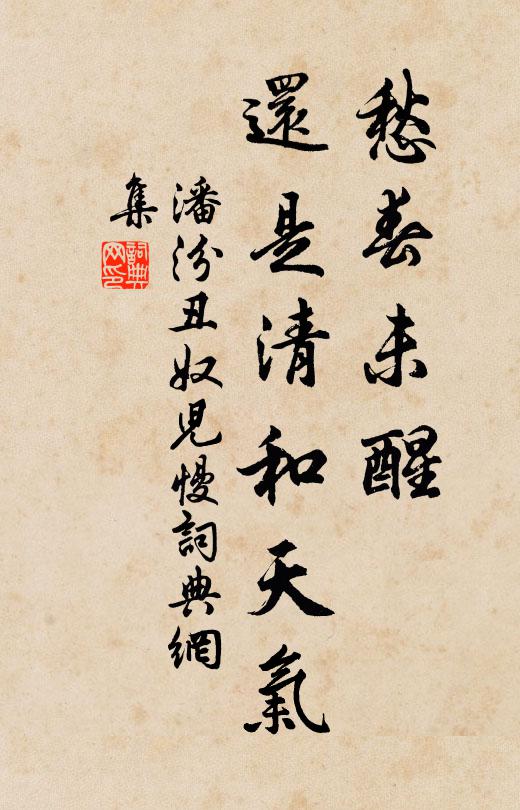 愁春未醒
還是清和天氣
潘汾丑奴兒慢詞典網
集
詞典
网印